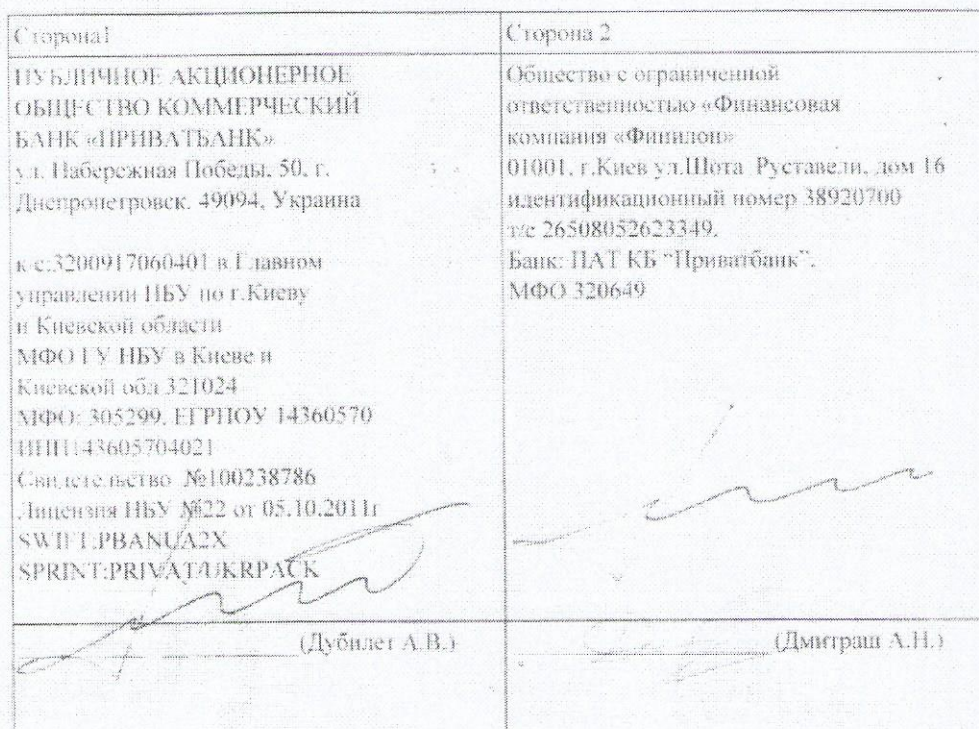 Сторона1
ПУБЛИЧНОЕ АКЦИОНЕРНОЕ
ОБЩЕСТВО КОММЕРЧЕСКИЙ
БАНК «ПРИВАТБАНК»
ул. Набережная Победы, 50, г.
Днепропетровск, 49094, Украина
к/с:3200917060401 в Главном
управлении НБУ по г.Киеву
и Киевской области
МФО ГУ НБУ в Киеве и
Киевской обл 321024
МФО: 305299, ЕГРПОУ 14360570
ИНН143605704021
Свидетельство №100238786
Лицензия НБУ №22 от 05.10.2011г
SWIFT:PBANUA2X
SPRINT:PRIVAT/UKRPACK
(Дубилет А.В.)
Сторона 2
Общество с ограниченной
ответственностью «Финансовая
компания «Финилон»
01001, г.Киев ул.Шота Руставели, дом 16
идентификационный номер 38920700
т/с 26508052623349,
Банк: ПАТ КБ "Приватбанк",
МФО 320649
(Дмитраш А.Н.)